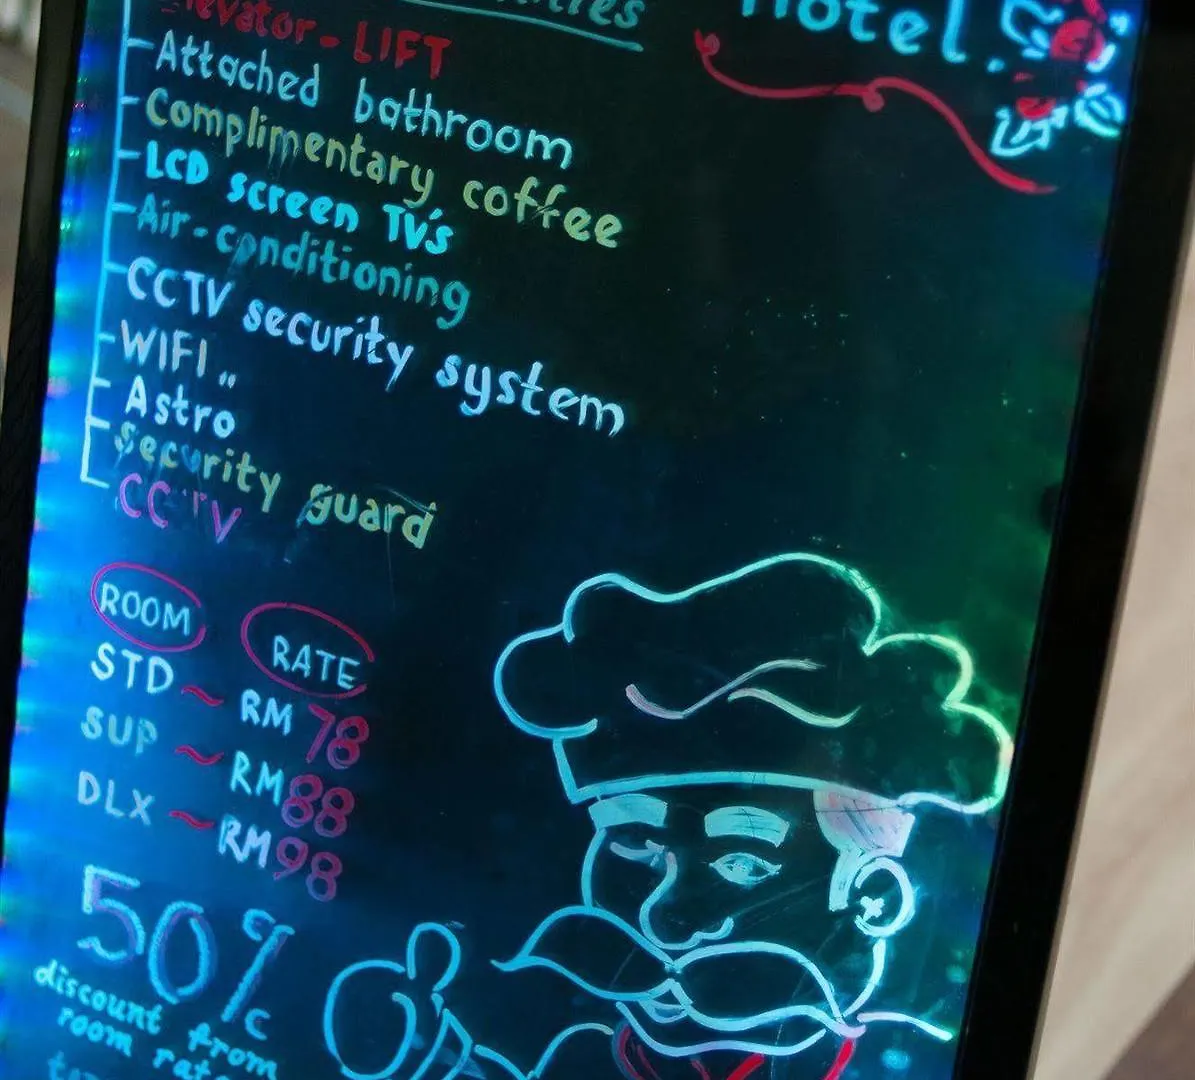 Hotel.
Elevator - LIFT
Attached bathroom
Complimentary coffee
LCD screen TV's
Air-conditioning
CCTV security system
WIFI „
Astro
Security guard
CCTV
ROOM RATE
STD ~ RM 78
SUP ~ RM 88
DLX ~ RM 98
50%
discount from
room